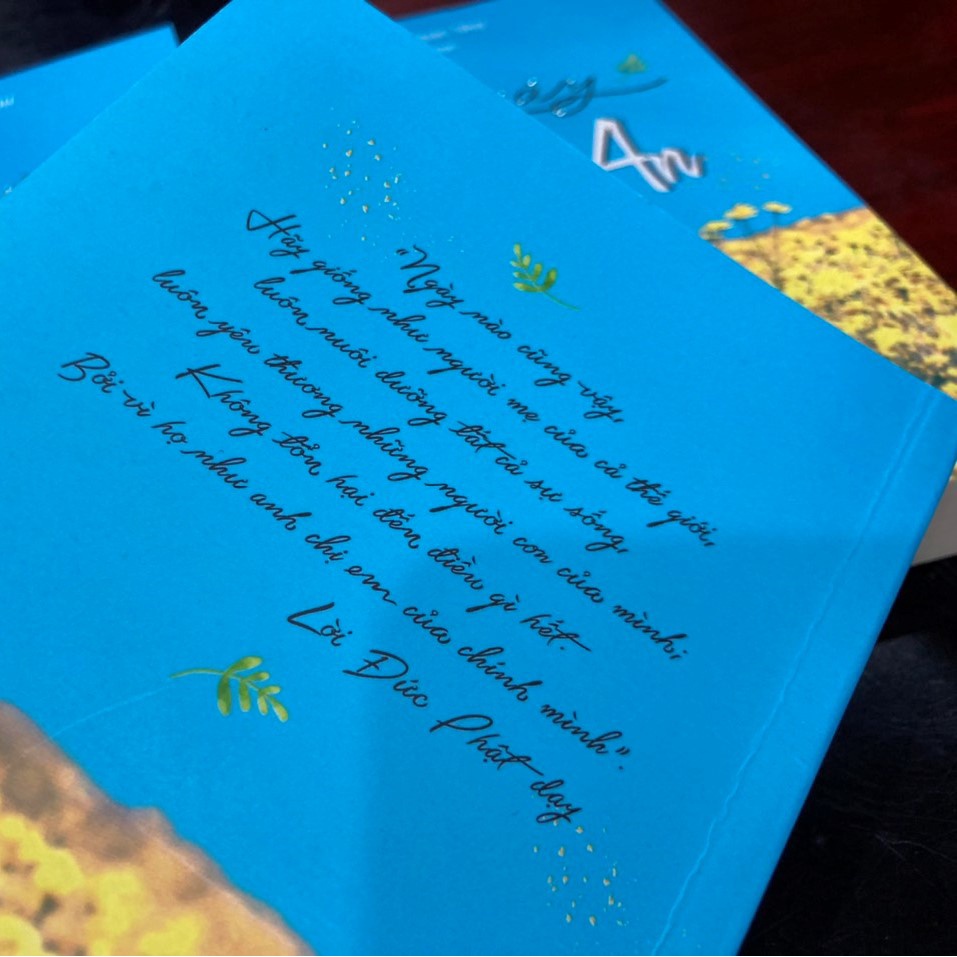 An
"Ngày nào cũng vậy,
Hãy giống như người mẹ của cả thế giới,
luôn nuôi dưỡng tất cả sự sống,
luôn yêu thương những người con của mình;
Không tổn hại đến điều gì hết.
Bởi vì họ như anh chị em của chính mình".
Lời Đức Phật dạy